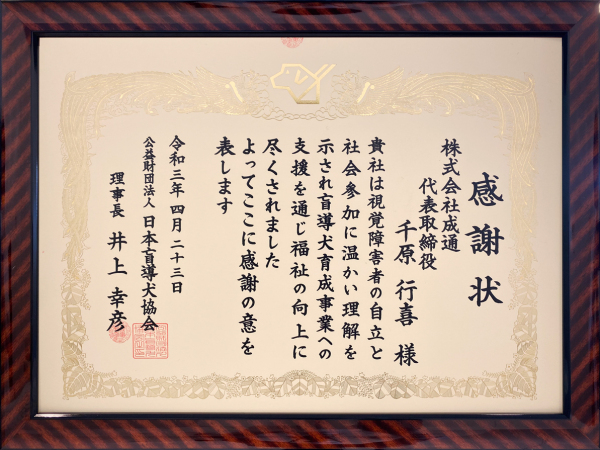 感謝状
株式会社成通
代表取締役
千原行喜様
貴社は視覚障害者の自立と
社会参加に温かい理解を
示され盲導犬育成事業への
支援を通じ福祉の向上に
尽くされました
よってここに感謝の意を
表します
令和三年四月二十三日
公益財団法人日本盲導犬協会
理事長井上幸彦